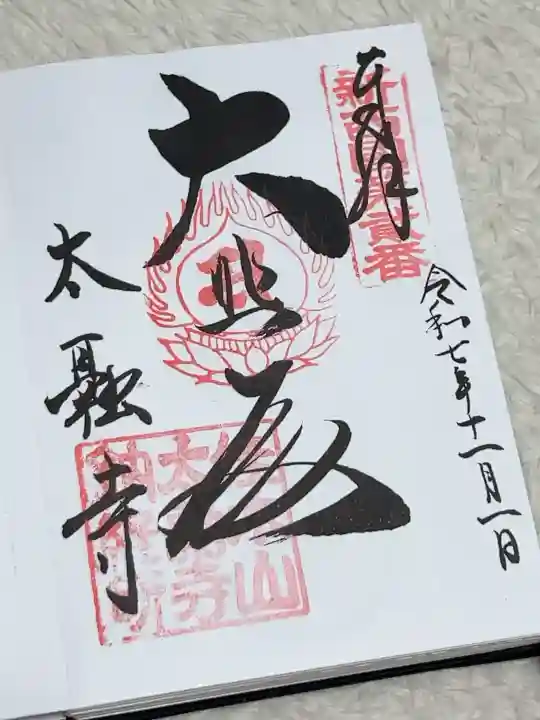 奉拝
新西国第貳番
令和七年十一月一日
大悲殿
太融寺
佳木山
太融寺